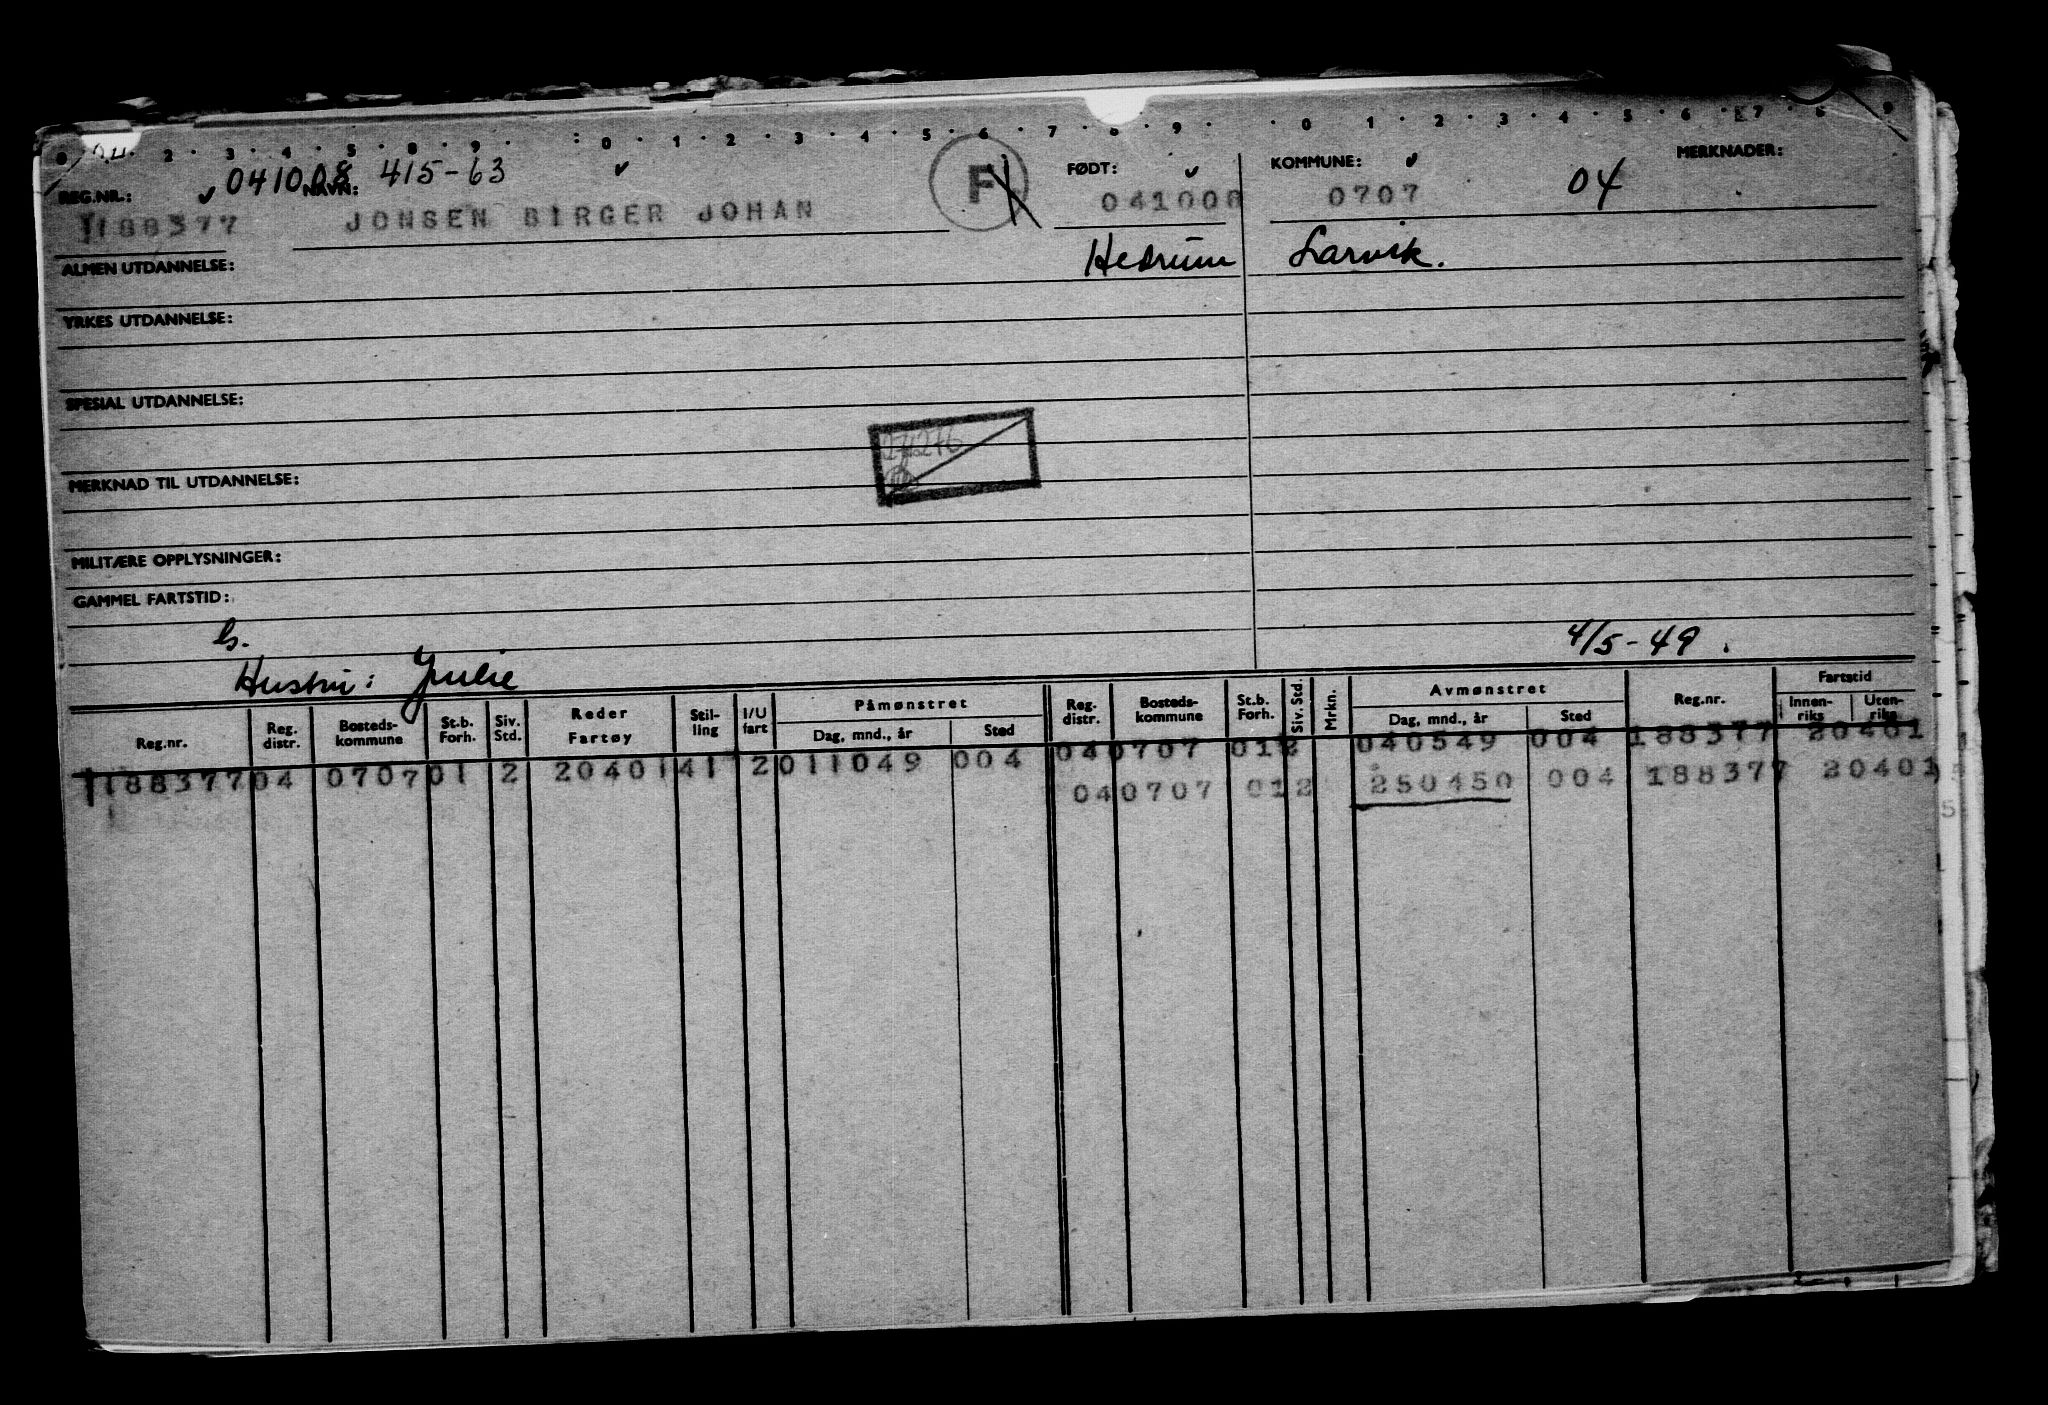 0 · 2 · 3 · 4 · 5 · 8 · 9 · : 0 · 1 · 2 · 3 · 4 · 5 · 6 · 7 · 8 · 9 · · 0 · 1 · 2 · 3 · 4 · 5 · 6 · 7 · 8 9
REG.NR.: 041008 NAVN: 415-63 F FØDT: KOMMUNE: 04 MERKNADER:
188377 JONSEN BIRGER JOHAN 041008 0707
ALMEN UTDANNELSE: Hedrum Larvik.
YRKES UTDANNELSE:
SPESIAL UTDANNELSE:
MERKNAD TIL UTDANNELSE:
MILITÆRE OPPLYSNINGER:
GAMMEL FARTSTID:
G. 4/5-49.
Hustru: Julie
Reg.nr. Reg. distr. Bosteds-kommune St.b. Forh. Siv. Std. Reder Fartøy Stil-ling I/U fart Påmønstret Dag, mnd., år Sted Reg. distr. Bosteds-kommune St.b. Forh. Siv. Std. Mrkn. Avmønstret Dag, mnd., år Sted Reg.nr. Fartstid Innen-riks Uten-riks
04 0707 01 2 040549 004 188377 20401
188377 04 0707 01 2 20401 41 2 011049 004 04 0707 01 2 250450 004 188377 20401